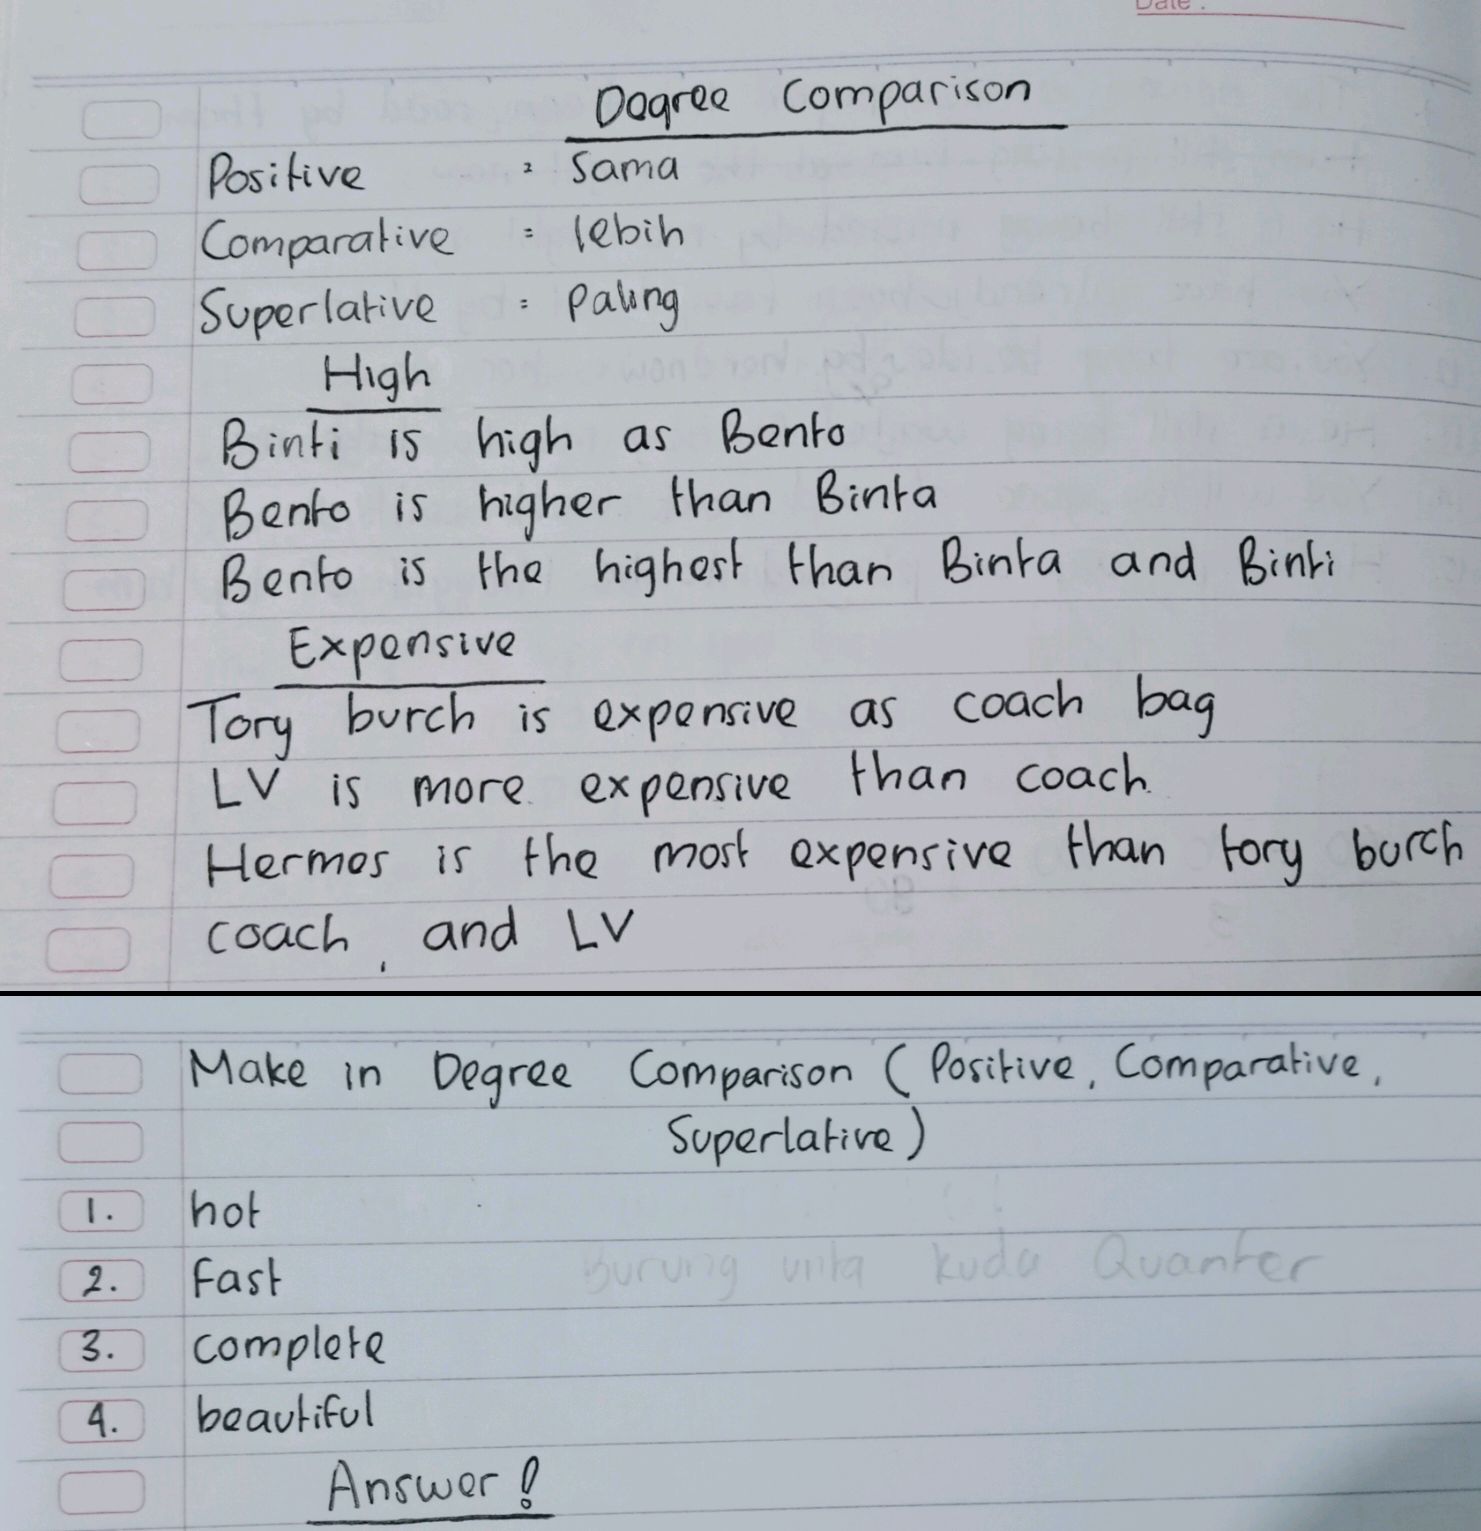 Date :
Degree Comparison
Positive : Sama
Comparative : lebih
Superlative : Paling
High
Binti is high as Bento
Bento is higher than Binta
Bento is the highest than Binta and Binti
Expensive
Tory burch is expensive as coach bag
LV is more expensive than coach
Hermes is the most expensive than tory burch
coach, and LV
Make in Degree Comparison (Positive, Comparative,
Superlative)
1. hot
2. Fast
3. complete
4. beautiful
Answer!